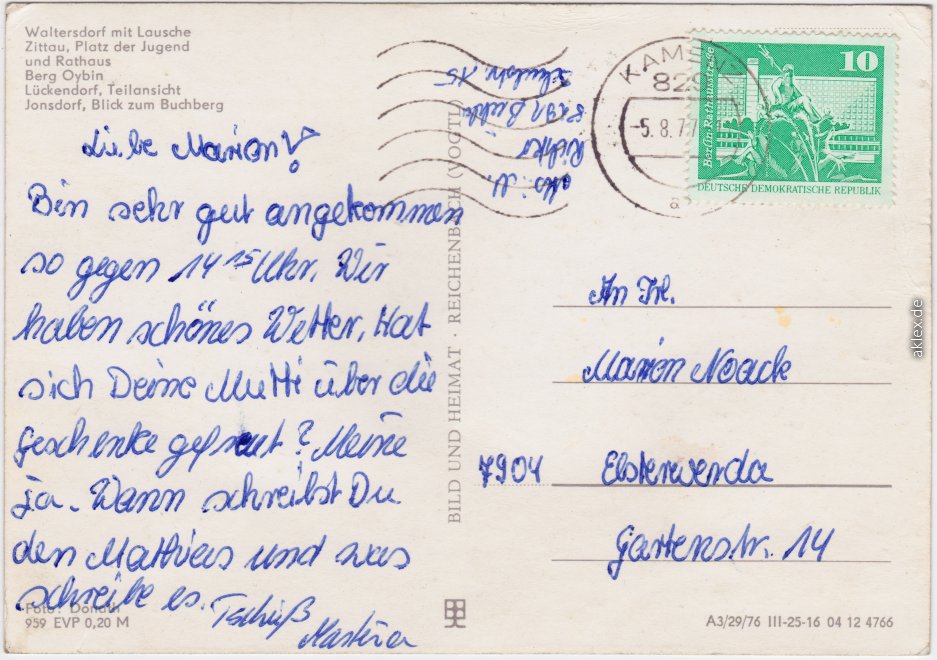 Waltersdorf mit Lausche
Zittau, Platz der Jugend
und Rathaus
Berg Oybin
Lückendorf, Teilansicht
Jonsdorf, Blick zum Buchberg
Liebe Marion!
Bin sehr gut angekommen
so gegen 14 15 Uhr. Wir
haben schönes Wetter. Hat
sich Deine Mutti über die
Geschenke gefreut? Meine
ja. Wann schreibst Du
den Mathias und was
schreibe es.
Tschüß
Martina
Foto: Donath
959 EVP 0,20 M
BILD UND HEIMAT · REICHENBACH (VOGTL)
Abs. M.
Richter
KAMENZ
829
-5.8.77
a
10
Berlin, Rathausstraße
DEUTSCHE DEMOKRATISCHE REPUBLIK
An Frl.
Marion Noack
7904 Elsterwerda
Gartenstr. 14
A3/29/76 III-25-16 04 12 4766
aklex.de